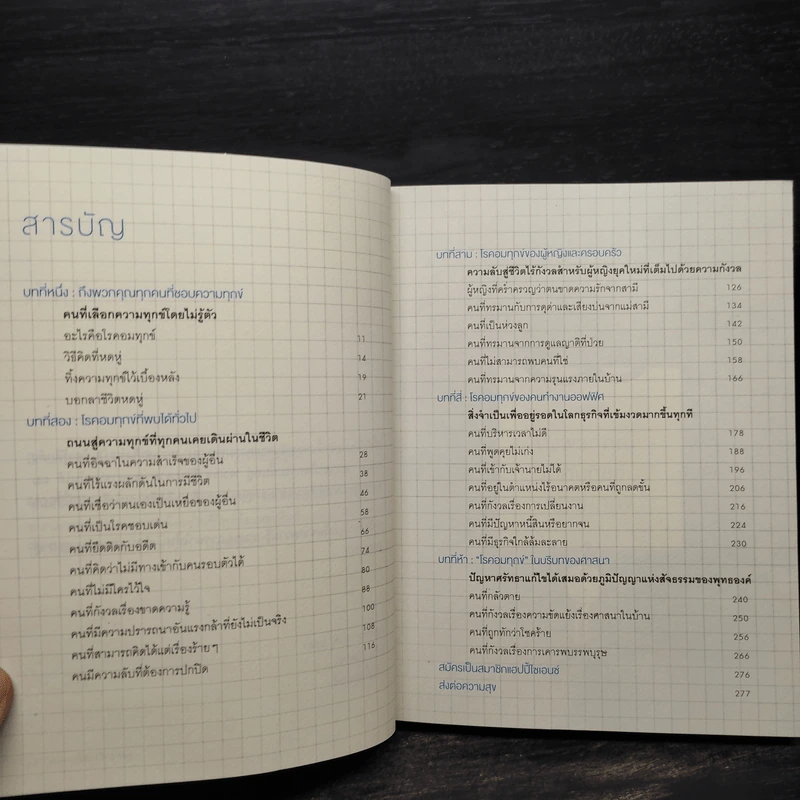 สารบัญ
บทที่หนึ่ง : ถึงพวกคุณทุกคนที่ชอบความทุกข์
คนที่เลือกความทุกข์โดยไม่รู้ตัว
อะไรคือโรคอมทุกข์ 11
วิธีคิดที่หดหู่ 14
ทิ้งความทุกข์ไว้เบื้องหลัง 19
บอกลาชีวิตหดหู่ 21
บทที่สอง : โรคอมทุกข์ที่พบได้ทั่วไป
ถนนสู่ความทุกข์ที่ทุกคนเคยเดินผ่านในชีวิต
คนที่อิจฉาในความสำเร็จของผู้อื่น 28
คนที่ไร้แรงผลักดันในการมีชีวิต 38
คนที่เชื่อว่าตนเองเป็นเหยื่อของผู้อื่น 46
คนที่เป็นโรคชอบเด่น 58
คนที่ยึดติดกับอดีต 66
คนที่คิดว่าไม่มีทางเข้ากับคนรอบตัวได้ 74
คนที่ไม่มีใครไว้ใจ 80
คนที่กังวลเรื่องขาดความรู้ 88
คนที่มีความปรารถนาอันแรงกล้าที่ยังไม่เป็นจริง 100
คนที่สามารถคิดได้แต่เรื่องร้าย ๆ 108
คนมีความลับที่ต้องการปกปิด 116
บทที่สาม : โรคอมทุกข์ของผู้หญิงและครอบครัว
ความลับสู่ชีวิตไร้กังวลสำหรับผู้หญิงยุคใหม่ที่เต็มไปด้วยความกังวล
ผู้หญิงที่คร่ำครวญว่าตนขาดความรักจากสามี 126
คนที่ทรมานกับการดุด่าและเสียงบ่นจากแม่สามี 134
คนที่เป็นห่วงลูก 142
คนที่ทรมานจากการดูแลญาติที่ป่วย 150
คนที่ไม่สามารถพบคนที่ใช่ 158
คนที่ทรมานจากความรุนแรงภายในบ้าน 166
บทที่สี่ : โรคอมทุกข์ของคนทำงานออฟฟิศ
สิ่งจำเป็นเพื่ออยู่รอดในโลกธุรกิจที่เข้มงวดมากขึ้นทุกที
คนที่บริหารเวลาไม่ดี 178
คนที่พูดคุยไม่เก่ง 188
คนที่เข้ากับเจ้านายไม่ได้ 196
คนที่อยู่ในตำแหน่งไร้อนาคตหรือคนที่ถูกลดขั้น 206
คนที่กังวลเรื่องการเปลี่ยนงาน 216
คนที่มีปัญหาหนี้สินหรือยากจน 224
คนที่มีธุรกิจใกล้ล้มละลาย 230
บทที่ห้า : "โรคอมทุกข์" ในบริบทของศาสนา
ปัญหาศรัทธาแก้ไขได้เสมอด้วยภูมิปัญญาแห่งสัจธรรมของพุทธองค์
คนที่กลัวตาย 240
คนที่กังวลเรื่องความขัดแย้งเรื่องศาสนาในบ้าน 250
คนที่ถูกทักว่าโชคร้าย 256
คนที่กังวลเรื่องการเคารพบรรพบุรุษ 266
สมัครเป็นสมาชิกแฮปปี้ไซเอนซ์ 276
ส่งต่อความสุข 277